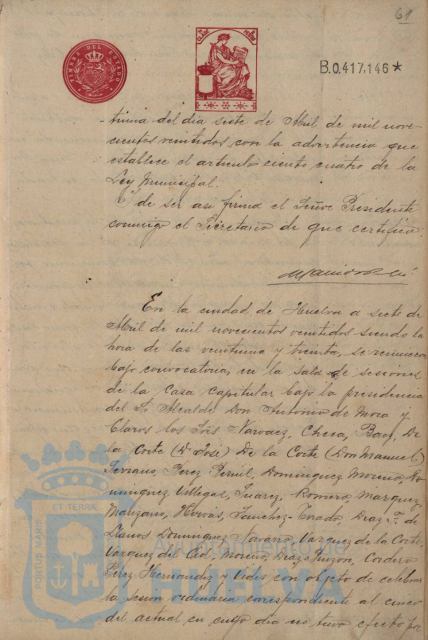 61
TIMBRE DEL ESTADO
B.0.417.146*
tiuna del dia siete de Abril de mil nove-
cientos veintidos con la advertencia que
establece el articulo ciento cuatro de la
Ley Municipal.
Y de ser asi firma el Señor Presidente
conmigo el Secretario de que certifico.
En la ciudad de Huelva a siete de
Abril de mil novecientos veintidos siendo la
hora de las veintiuna y treinta, se reunieron
bajo convocatoria, en la Sala de sesiones
de la Casa Capitular bajo la presidencia
del Sr. Alcalde Don Antonio de Mora y
Claros los Sres Narvaez, Checa, De
la Corte (Dn José) De la Corte (Don Manuel)
Soriano, Perez Dominguez Moreno,
Villegas, Suarez, Romero, Marquez,
Hervás, Sanchez-Tirado, Diaz, F. de
Llanos Dominguez Navarro, Vazquez de la Corte,
Vazquez del Cid, Moreno, Diaz Pinzon, Cordero
Perez Hernandez y Vides con objeto de celebrar
la sesión ordinaria correspondiente al cinco
del actual en cuyo dia no tuvo efecto por
PORTUS MARIS ET TERRAE
Ayuntamiento de
HUELVA